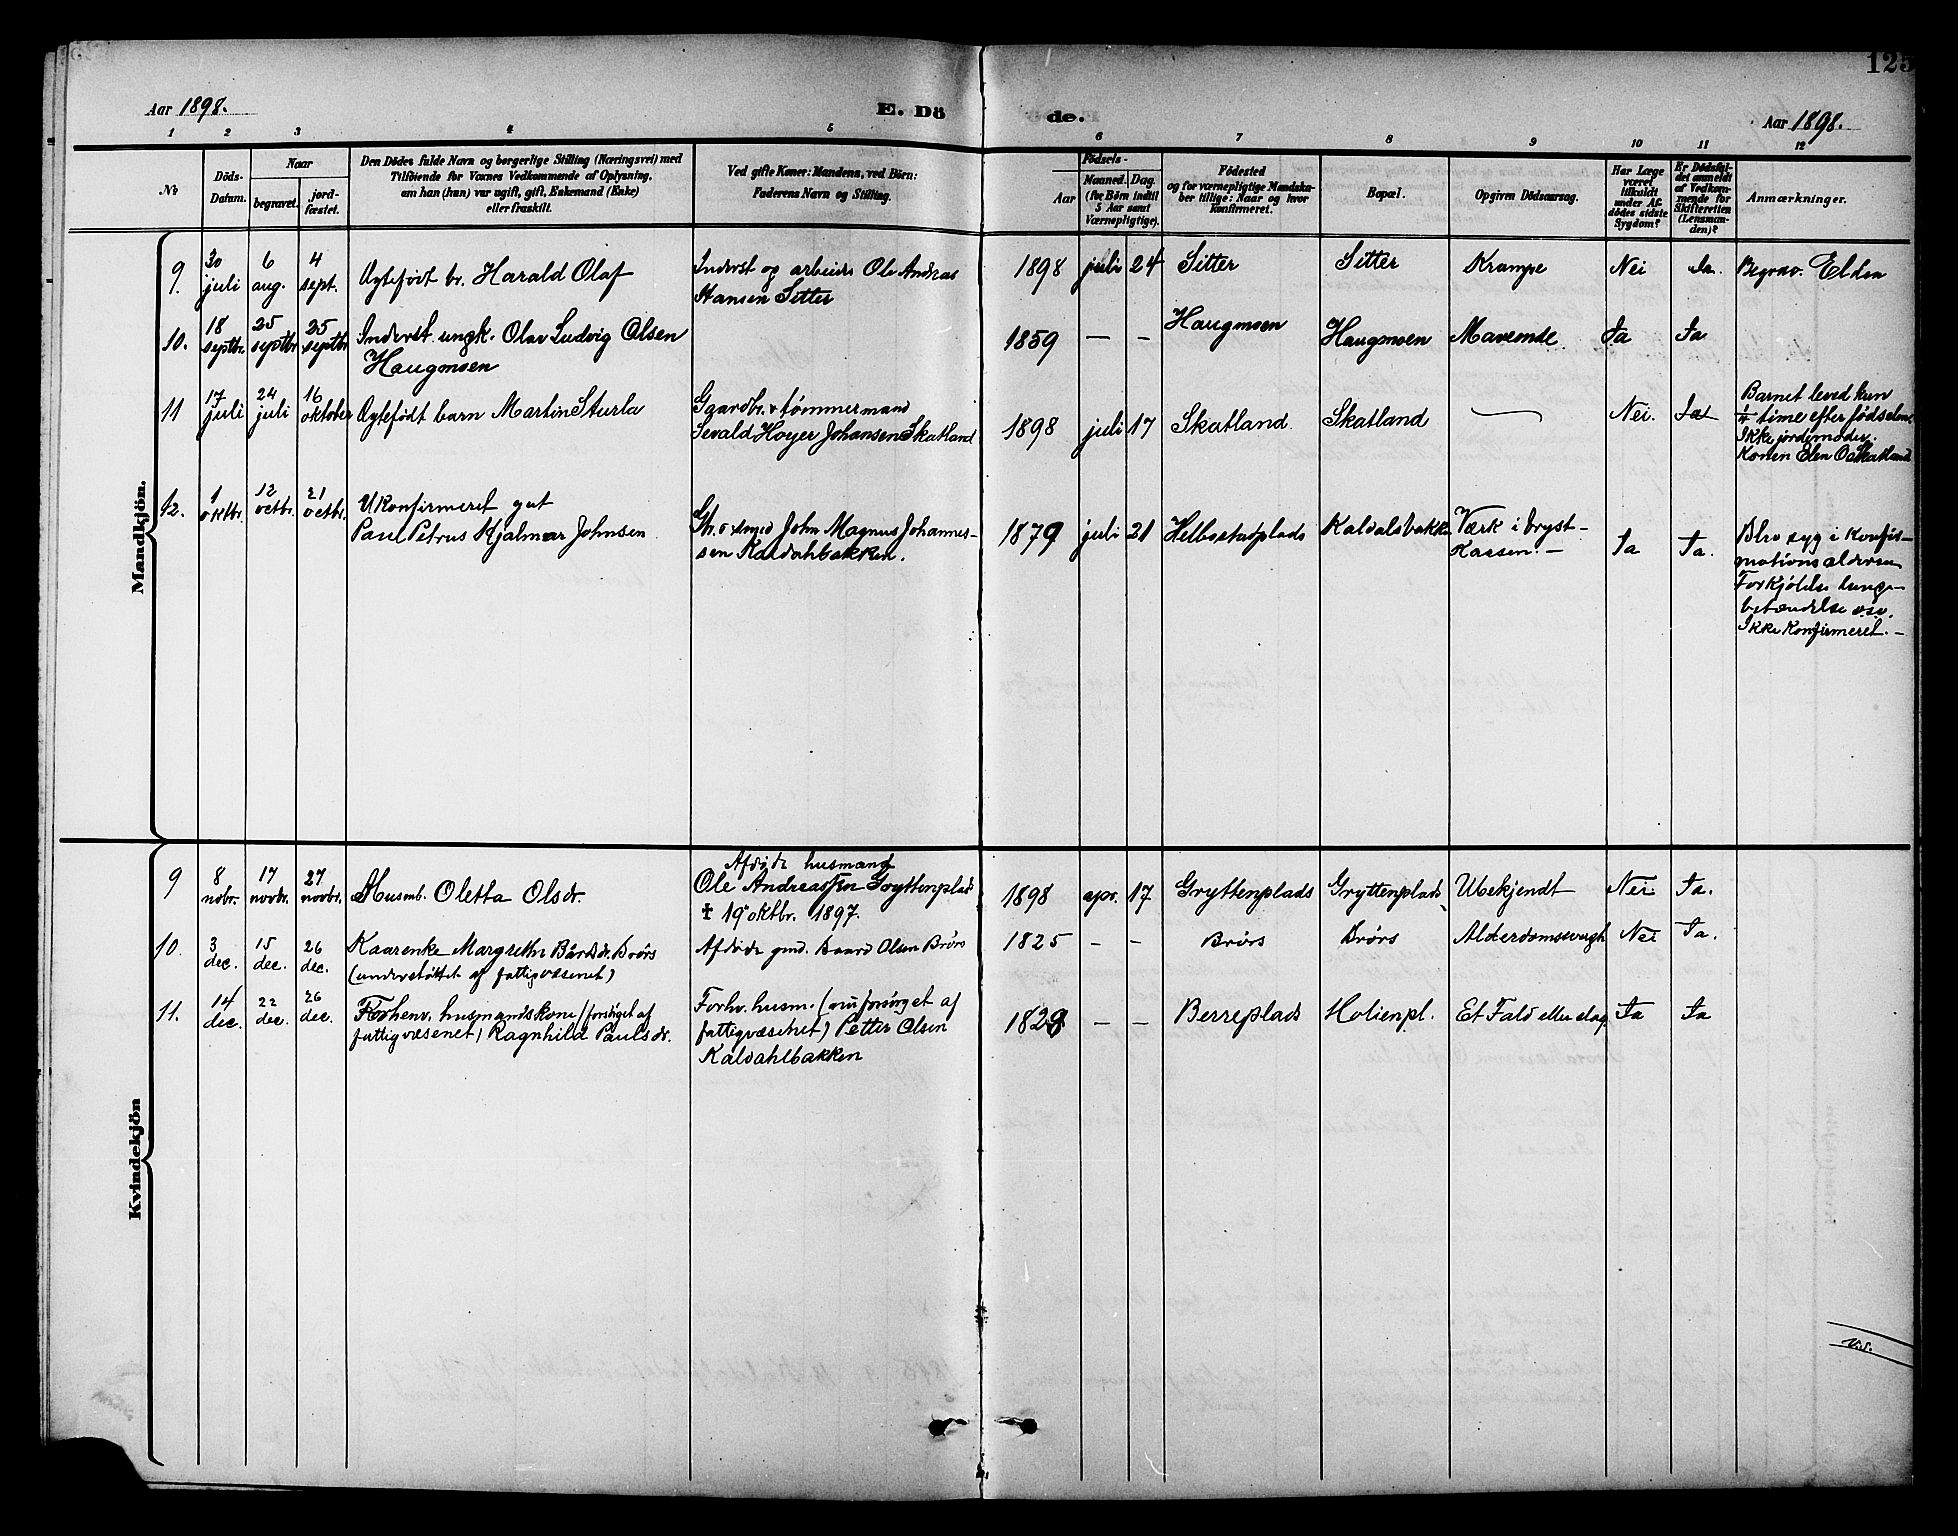 125
Aar 1898.
E. Dö
de.
Aar 1898.
1 2 3 4 5 6 7 8 9 10 11 12
No
Döds-
Datum.
Naar
begravet.
jord-
fæstet.
Den Dödes fulde Navn og borgerlige Stilling (Næringsvei) med
Tilföiende for Voxnes Vedkommende af Oplysning,
om han (hun) var ugift, gift, Enkemand (Enke)
eller fraskilt.
Ved gifte Koner: Mandens, ved Börn:
Faderens Navn og Stilling.
Födsels-
Aar
Maaned. Dag.
(for Börn indtil
5 Aar samt
Værnepligtige).
Födested
og for værnepligtige Mandska-
ber tillige: Naar og hvor
Konfirmeret.
Bopæl.
Opgiven Dödsaarsag.
Har Læge
været
tilkaldt
under Af-
dödes sidste
Sygdom?
Er Dödsfal-
det anmeldt
af Vedkom-
mende for
Skifteretten
(Lensman-
den)?
Anmærkninger.
Mandkjön.
9. 30 juli 6 aug. 4 sept. Ægtefødt br. Harald Olaf
Inderst og arbeids Ole Andreas
Hansen Sitter
1898 juli 24 Sitter Sitter Krampe Nei Ja. Begrav. Elden
10. 18 septbr. 25 septbr 25 septbr Inderst ungk. Olav Ludvig Olsen
Haugmoen
1859 — — Haugmoen Haugmoen Mavemde Ja Ja
11 17 juli 24 juli 16 oktober Ægtefødt barn Martin Sturla
Gaardbr. & tømmermand
Sevald Hoyer Johansen Skatland
1898 juli 17 Skatland Skatland — Nei. Ja
Barnet leved kun
time efter fødselen.
Ikke jordemoder.
Konen Elen Skatland
12. 1 oktbr. 12 octbr. 21 octbr. Ukonfirmeret gut
Paul Petrus Hjalmar Johnsen
Gbr. o smed John Magnus Johannes-
sen Kaldahlbakken.
1879 juli 21 Helbostadplads Kaldalsbakk Værk i bryst-
kassen. — Ja Ja.
syg i Konfir-
mationsalderen
Forkjølelse lunge-
betændelse osv.
Ikke Konfirmeret. —
Kvindekjön
9 8 novbr. 17 novbr. 27 novbr. Husmb. Oletta Olsdr.
Afdøde husmand
Ole Andreassen Gryttenplads
† 19 oktbr. 1897.
1898 apr. 17 Gryttenplads Gryttenplads Ubekjendt Nei Ja.
10. 3 dec. 15 dec. 26 dec. Kaarenke Margrethe Bårdsdr. Brørs
(understøttet af fattigvæsenet)
Afdøde gmd. Baard Olsen Brørs
1825 - - Brørs Brørs Alderdomssvagh Nei Ja.
11. 14 dec. 22 dec. 26 dec. Forhenv. husmandskone (forsörget af
fattigvæsenet) Ragnhild Paulsdr.
Forhv. husm. (nu forsörget af
fattigvæsenet) Petter Olsen
Kaldahlbakken
1829 — — Berreplads Holienpl. Et Fald eller slag Ja Ja